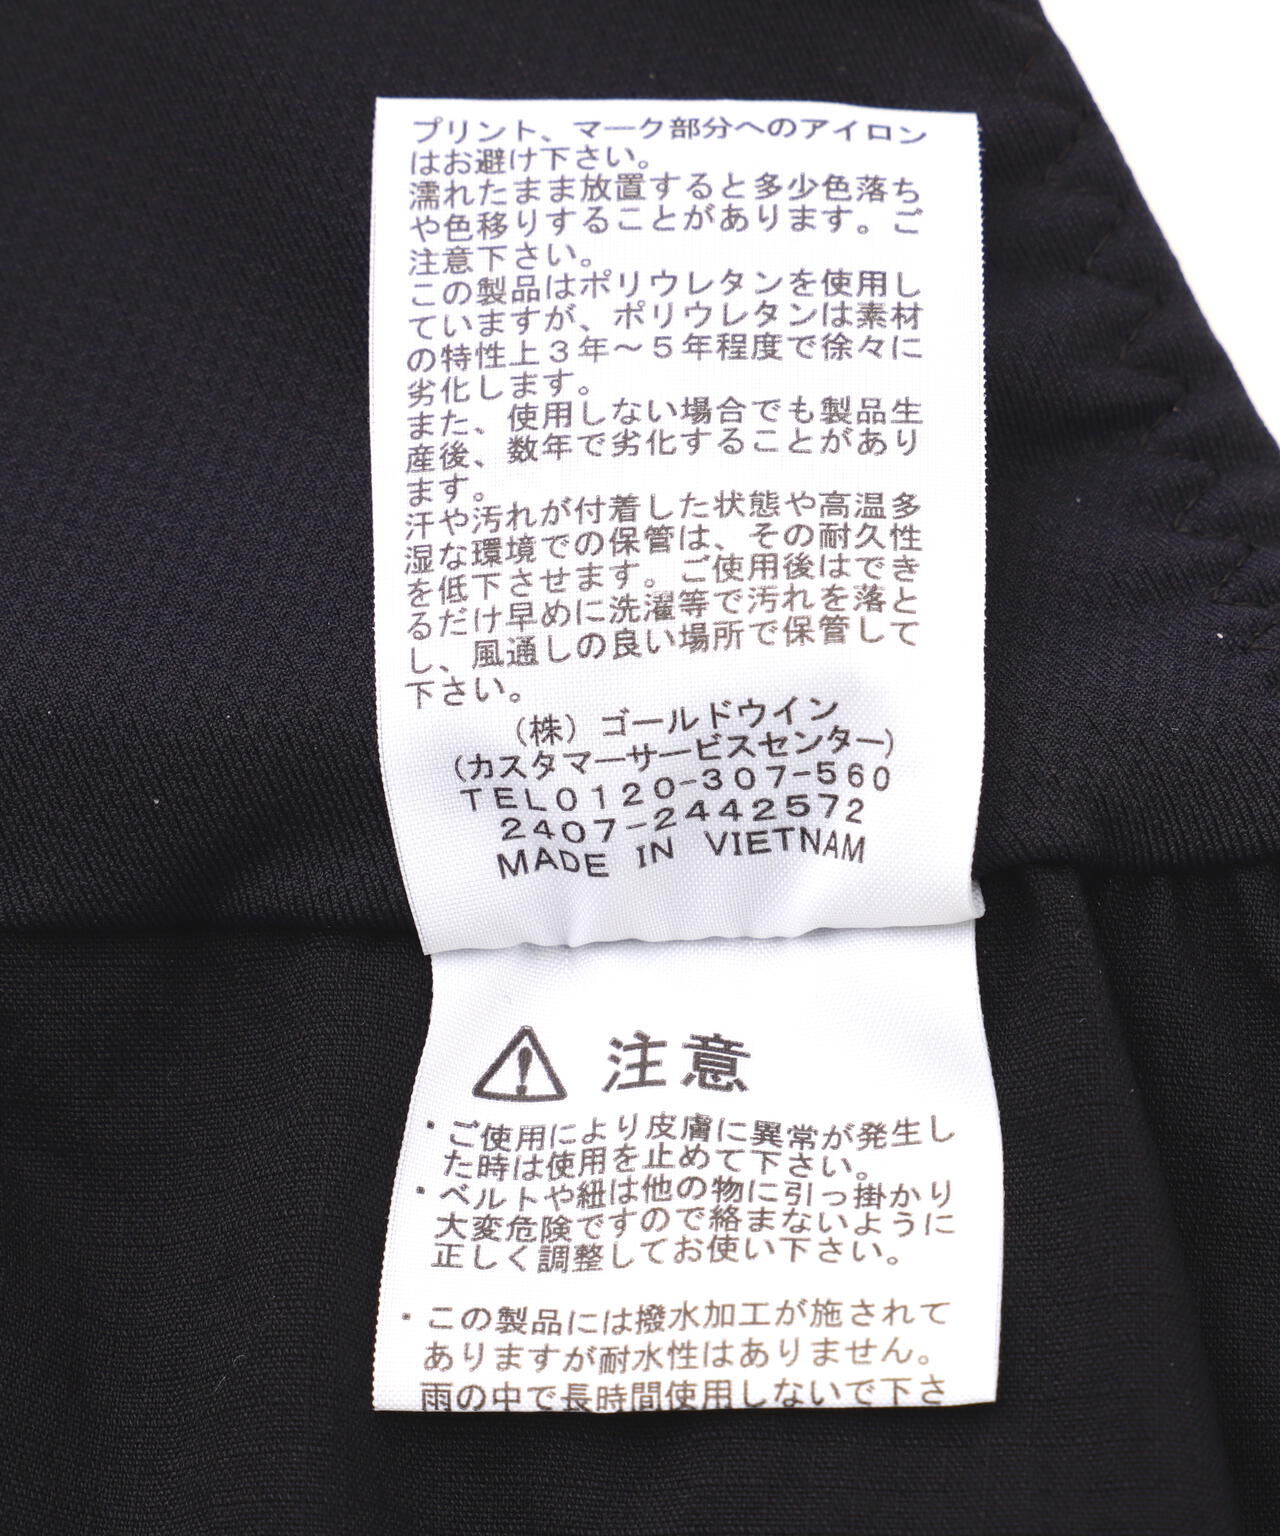 プリント、マーク部分へのアイロン
はお避け下さい。
濡れたまま放置すると多少色落ち
や色移りすることがあります。ご
注意下さい。
この製品はポリウレタンを使用し
ていますが、ポリウレタンは素材
の特性上3年〜5年程度で徐々に
劣化します。
また、使用しない場合でも製品生
産後、数年で劣化することがあり
ます。
汗や汚れが付着した状態や高温多
湿な環境での保管は、その耐久性
を低下させます。ご使用後はでき
るだけ早めに洗濯等で汚れを落と
し、風通しの良い場所で保管して
下さい。
(株)ゴールドウイン
(カスタマーサービスセンター)
TEL0120-307-560
2407-2442572
MADE IN VIETNAM
注意
・ご使用により皮膚に異常が発生し
た時は使用を止めて下さい。
・ベルトや紐は他の物に引っ掛かり
大変危険ですので絡まないように
正しく調整してお使い下さい。
・この製品には撥水加工が施されて
ありますが耐水性はありません。
雨の中で長時間使用しないで下さ